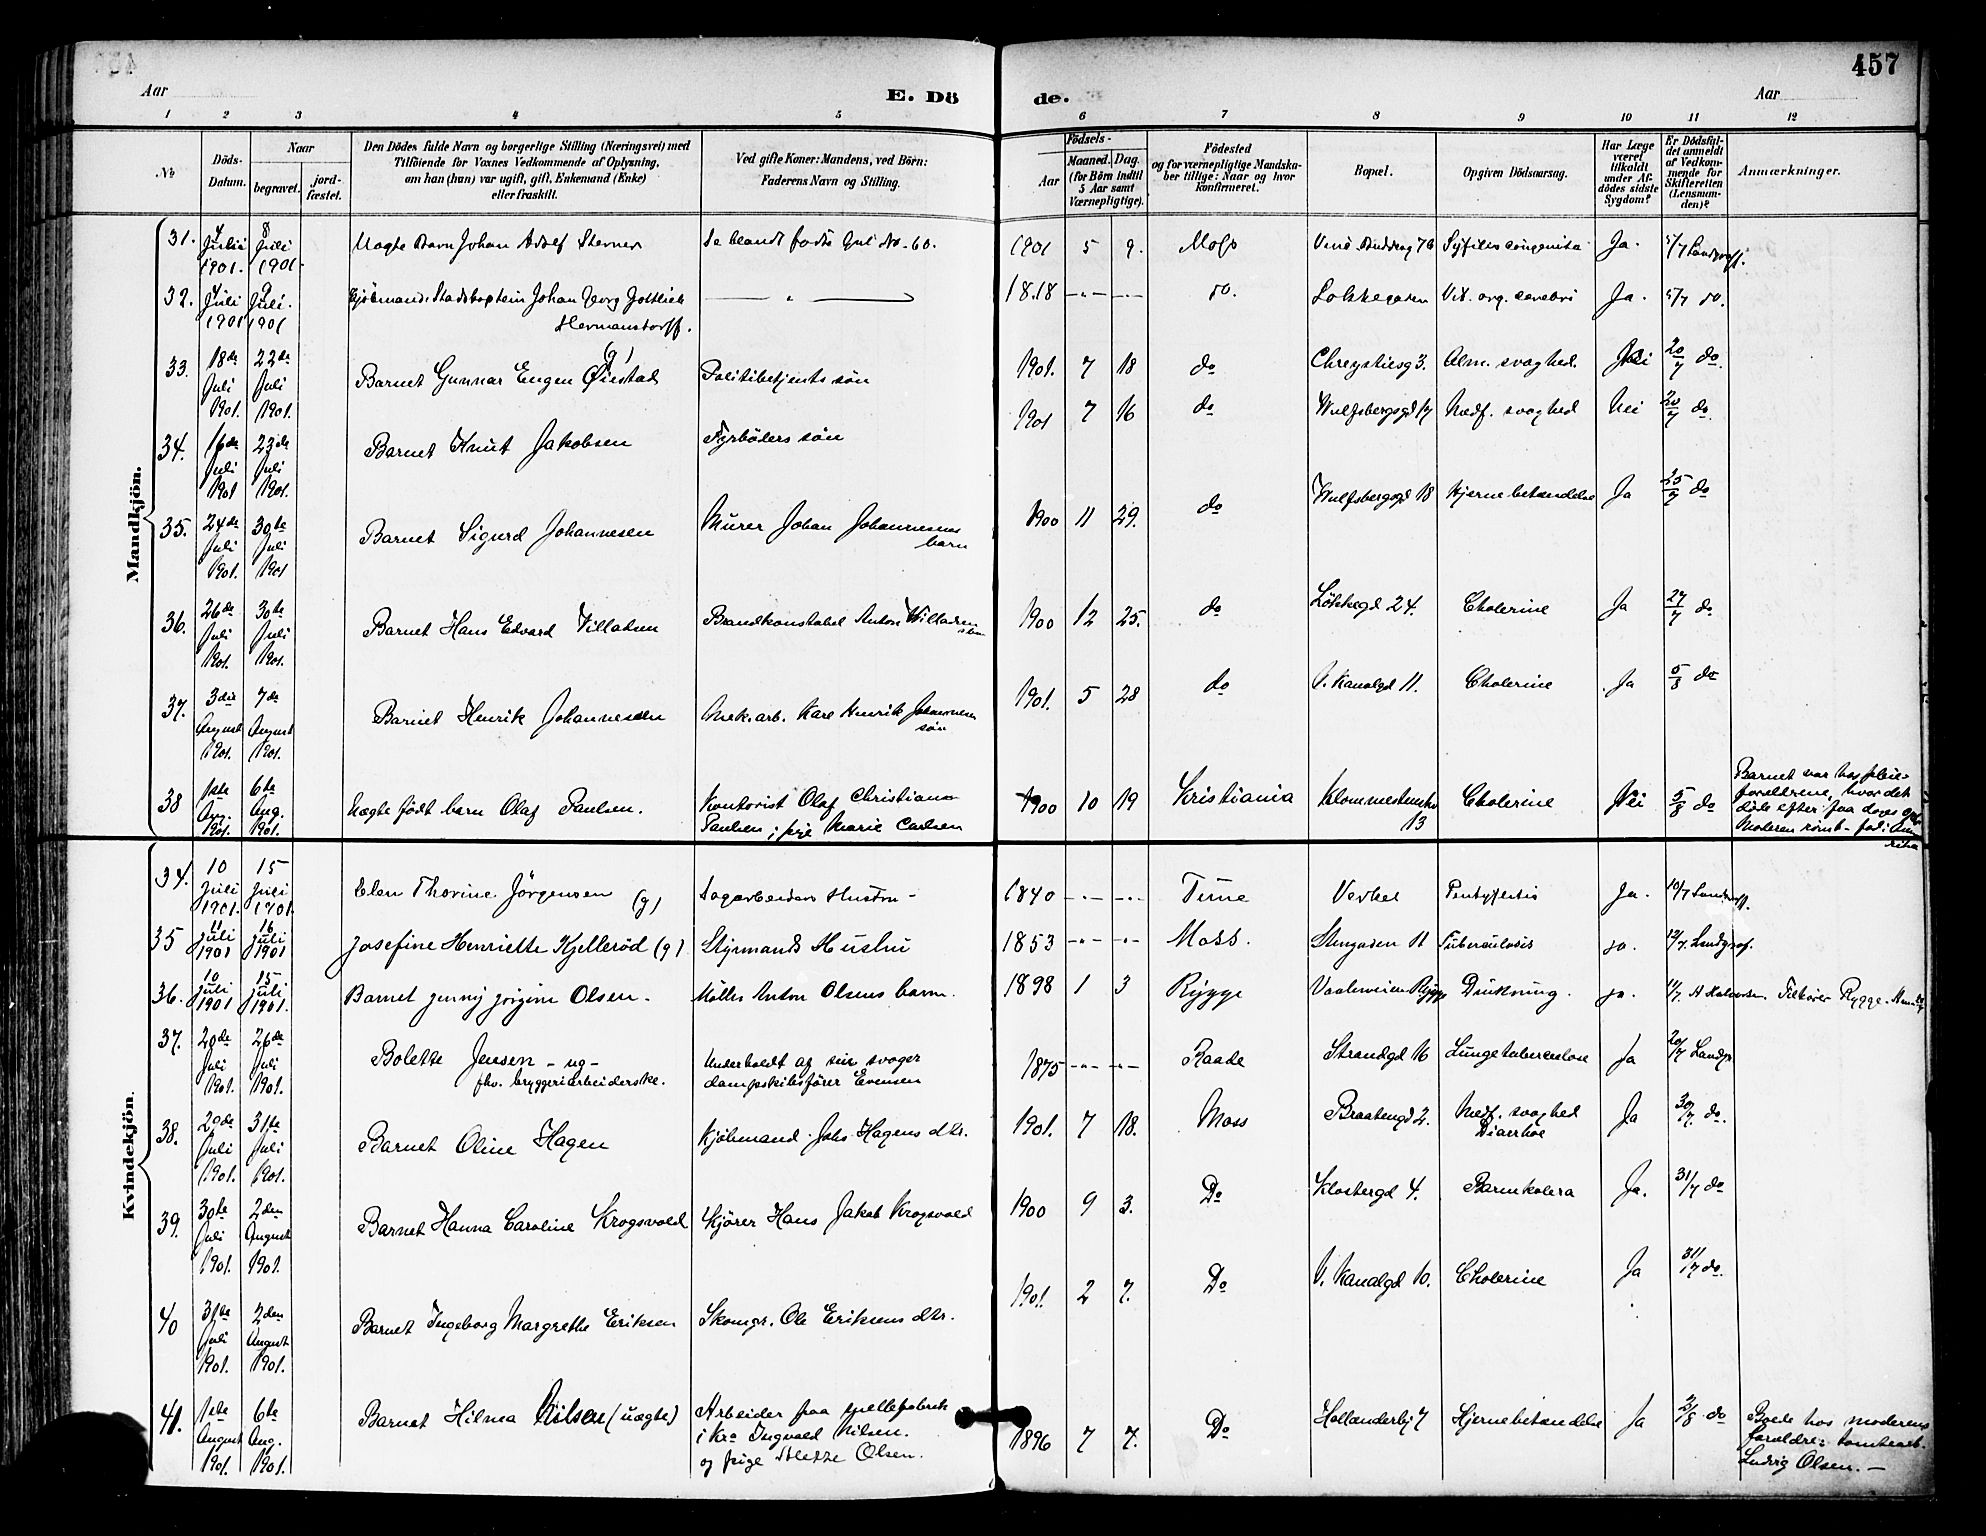 457
Aar
E. Dö
de.
Aar
1 2 3 4 5 6 7 8 9 10 11 12
No
Döds-
Datum.
Naar
begravet.
jord-
fæstet.
Den Dödes fulde Navn og borgerlige Stilling (Næringsvei) med
Tilföiende for Voxnes Vedkommende af Oplysning,
om han (hun) var ugift, gift, Enkemand (Enke)
eller fraskilt.
Ved gifte Koner: Mandens, ved Börn:
Faderens Navn og Stilling.
Födsels-
Aar
Maaned. Dag.
(for Börn indtil
5 Aar samt
Værnepligtige).
Födested
og for værnepligtige Mandska-
ber tillige: Naar og hvor
konfirmeret.
Bopæl.
Opgiven Dödsaarsag.
Har Læge
været
tilkaldt
under Af-
dödes sidste
Sygdom?
Er Dödsfal-
det anmeldt
af Vedkom-
mende for
Skifteretten
(Lensman-
den)?
Anmærkninger.
Mandkjön.
31. 4 Juli 1901. 8 Juli 1901. Uægte Barn Johan Adolf Sterner Se blandt fødte No. 60. 1901 5 9. Moss 76 Syfilis congenita Ja. 5/7
32. 4 Juli 1901 9 Juli 1901 Johan Georg Gottlieb
Hermanstorff.
— " — 1818 -"- -"- do. Lokkegaden Vit. org. cerebri Ja. 5/7 do.
33. 18de Juli 1901. 22de Juli 1901. Barnet Gunnar Eugen Øiestad (g) Politibetjents søn 1901. 7 18 do Chrystiesg 3. Alm. svaghed. Nei 20/7 do.
34. 16de Juli 1901 23de Juli 1901. Barnet Knut Jakobsen Fyrbøders søn 1901 7 16 do Wulfsbergsgd 17 Medf. svaghed Nei 20/7 do.
35. 24de Juli 1901. 30te Juli 1901 Barnet Sigurd Johannesen Murer Johan Johannesens
barn
1900 11 29. do Wulfsbergsgd 18 Hjernebetændelse Ja 25/7 do
36. 26de Juli 1901. 30te Juli 1901. Barnet Hans Edvard Villadsen Brandkonstabel Anton Willadsen 1900 12 25. do Løkkegd 24. Cholerine Ja 27/7 do
37. 3die August 1901. 7de August 1901. Barnet Henrik Johannesen Mek. arb. Karl Henrik Johannesen
søn
1901. 5 28 do V. Kanalgd 11. Cholerine Ja 5/8 do
38 1ste Aug. 1901. 6te Aug. 1901. Uægte født barn Olaf Paulsen. Kontorist Olaf Christian
Paulsen; pige Marie Carlsen
1900 10 19 Kristiania 13 Cholerine Nei 5/8 do Barnet var hos pleie-
forældrene, hvor det
døde efter faa dages
Moderen
Kvindekjön.
34. 10 Juli 1901. 15 Juli 1901. Elen Thorine Jörgensen (g) Sagarbeiders Hustru - 1840 -"- -"- Tune Verket Ja. 10/7
35 11 juli 1901 16 juli 1901 Josefine Henriette Kjellerød (g) Styrmands Hustru 1853 -"- -"- Moss. Stengaden 11 Tuberculosis ja. 12/7
36. 10 juli 1901 15 juli 1901. Barnet Jenny Jorgine Olsen. Møller Anton Olsens barn. 1898 1 3 Rygge Vaalerveien Rygge Drukning. ja. 11/7 Rygge
37. 20de Juli 1901. 26de Juli 1901. Bolette Jensen - ug -
fhv. bryggeriarbeiderske.
Underholdt af sin svoger
dampskibsfører Evensen
1875 -"- -"- Raade Strandgd 16 Lungetuberculose Ja 20/7
38. 29de Juli 1901. 31te Juli 1901. Barnet Oline Hagen Kjøbmand Johs Hagens dtr. 1901. 7 18. Moss Braatengd 2. Medf. svaghed
Diarrhoe
Ja 30/7. do.
39. 30te Juli 1901. 2den August 1901. Barnet Hanna Caroline Krogsvold Kjører Hans Jakob Krogsvold 1900 9 3. Do Klostergd 4. Barnekolera Ja. 31/7 do
40 31te Juli 1901. 2den August 1901. Barnet Ingeborg Margrethe Eriksen Skomgr. Ole Eriksens dtr. 1901. 2 7. Do V. Kanalgd 10. Cholerine Ja 31/7 do.
41. 1ste August 1901. 6te Aug. 1901. Barnet Hilma Nilsen (uægte) Arbeider paa spellefabrik
i Kra Ingvald Nilsen.
og pige Bolette Olsen.
1896 7 7. Do Hollenderby 7 Hjernebetændelse Ja 2/8 do Boede hos moderens
forældre: tomtearb.
Ludvig Olsen. —